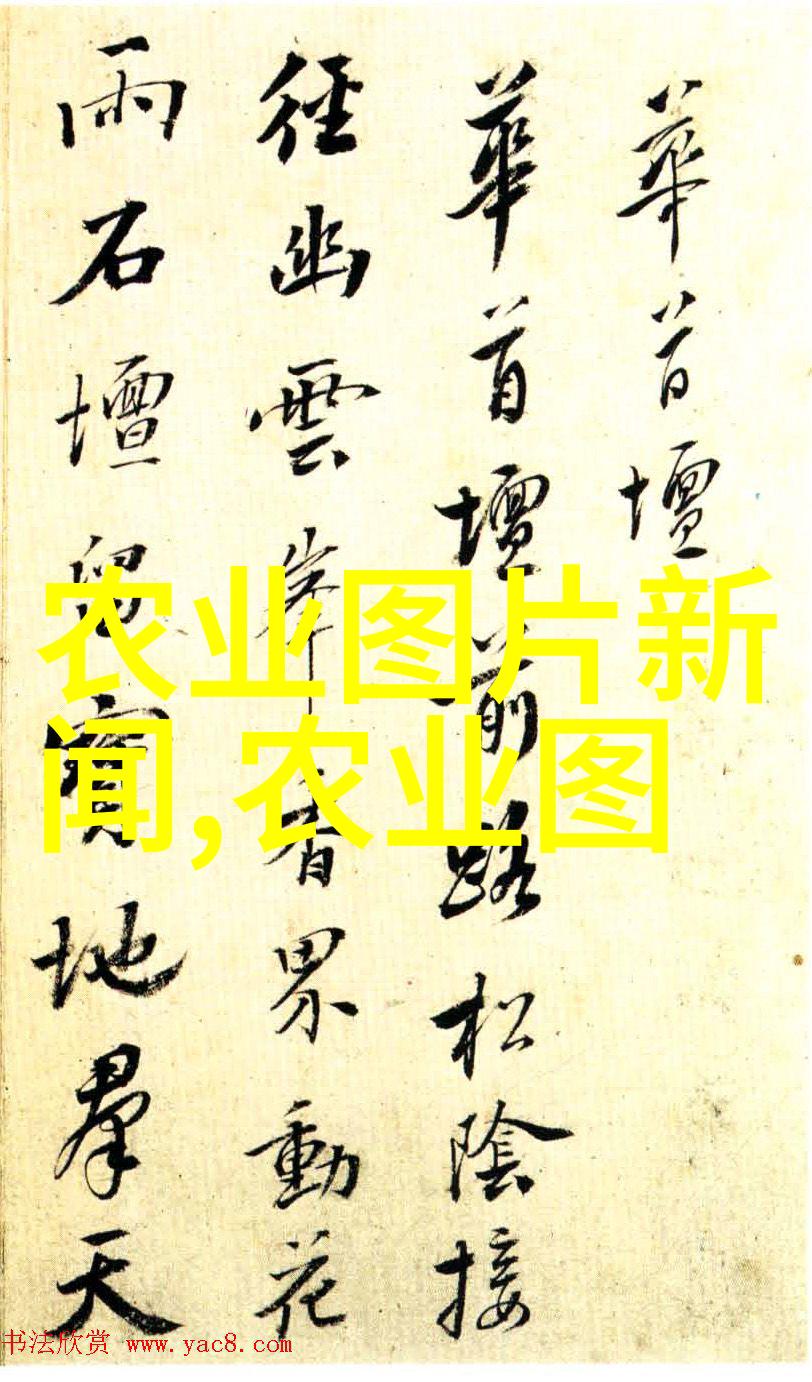 華首壇
華首壇前路松陰接
徑幽雲峯香界動花
雨石壇留寶地羣天
农业图片新
闻,农业图
书法欣赏 www.yac8.com